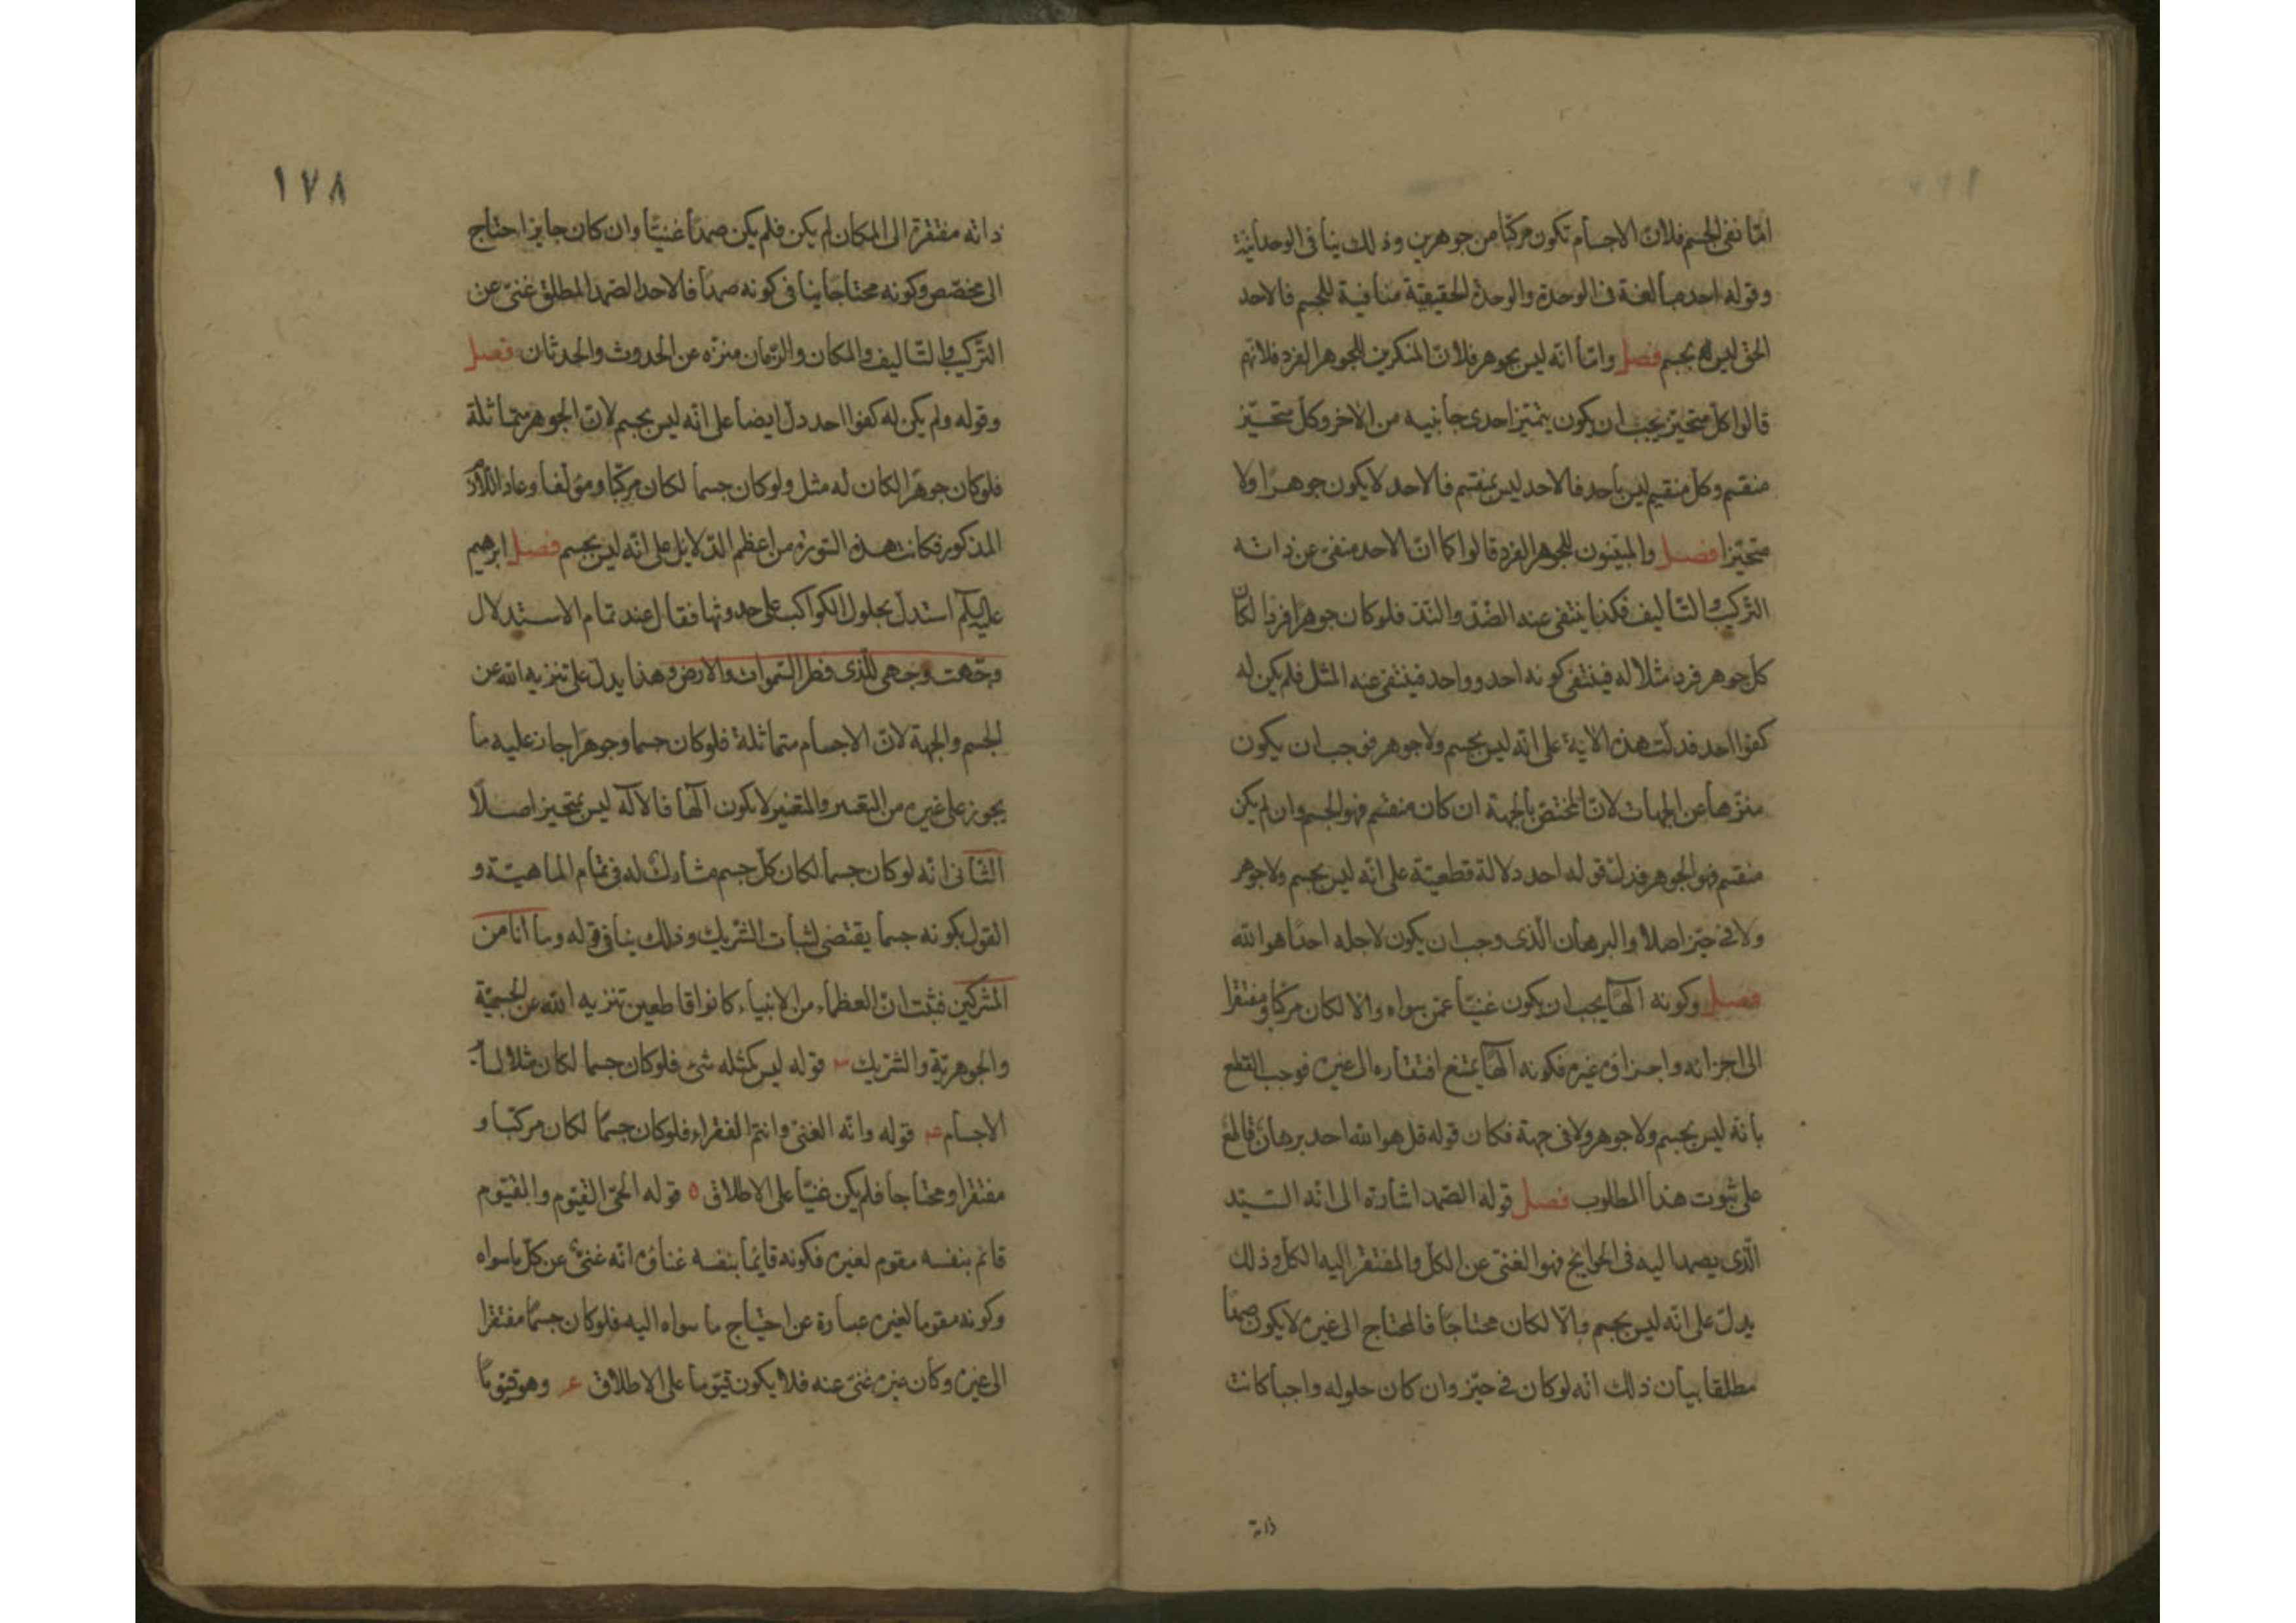 امّا نفى الجسم فلانّ الاجسام تكون مركّبا من جوهرين وذلك ينافى الوحدانية
وقوله احد مبالغة فى الوحدة والوحدة الحقيقيّة منافية للجسم فالاحد
الحق ليس بجسم فصل وامّا انّه ليس بجوهر فلانّ المنكرين للجوهر الفرد فلانّهم
قالوا كلّ متحيّز يجب ان يكون يتميّز احدى جانبيه من الاخر وكلّ متحيّز
منقسم وكلّ منقسم ليس باحد فالاحد ليس بمنقسم فالاحد لا يكون جوهرًا ولا
متحيّزا فصل والمثبتون للجوهر الفرد قالوا كما انّ الاحد منفى عن ذاته
التركيب والتأليف فكذا ينتفى عنه الضدّ والندّ فلو كان جوهرا فردا لكان
كل جوهر فرد مثلا له فينتفى كونه احد وواحد فينتفى عنه المثل فلم يكن له
كفوا احد فدلّت هذه الاية على انّه ليس بجسم ولا جوهر فوجب ان يكون
منزّها عن الجهات لانّ المختصّ بالجهة ان كان منقسم فهو الجسم وان لم يكن
منقسم فهو الجوهر فدلّ قوله احد دلالة قطعيّة على انّه ليس بجسم ولا جوهر
ولا فى حيّز اصلا والبرهان الّذى وجب ان يكون لاجله احدًا هو الله
فصل وكونه الهًا يجب ان يكون غنيّا عمّن سواه والا لكان مركّبا ومفتقرا
الى اجزائه واجزاؤه غيره فكونه الهًا يمنع افتقاره الى غيره فوجب القطع
بانّه ليس بجسم ولا جوهر ولا فى جهة فكان قوله قل هو الله احد برهان قاطع
على ثبوت هذا المطلوب فصل قوله الصّمد اشارة الى انّه السّيّد
الّذى يصمد اليه فى الحوايج فهو الغنىّ عن الكلّ والمفتقر اليه الكلّ وذلك
يدلّ على انّه ليس بجسم والّا لكان محتاجًا فالمحتاج الى غيره لا يكون صمدًا
مطلقا بيان ذلك انّه لو كان فى حيّز وان كان حلوله واجبا كانت
ذاته
١٧٨
ذاته مفتقرة الى المكان لم يكن فلم يكن صمدًا غنيّا وان كان جايزا احتاج
الى مخصّص وكونه محتاجًا ينافى كونه صمدًا فالاحد الصّمد المطلق غنىّ عن
التّركيب والتّأليف والمكان والزّمان منزّه عن الحدوث والحدثان فصل
وقوله ولم يكن له كفوا احد دلّ ايضا على انّه ليس بجسم لانّ الجوهر متماثلة
فلو كان جوهرًا لكان له مثل ولو كان جسما لكان مركّبا ومؤلّفا وعاد
المذكور فكانت هذه السّورة من اعظم الدّلايل على انّه ليس بجسم فصل ابرهيم
استدلّ بحلول الكواكب على حدوثها فقال عند تمام الاستدلال
وجّهت وجهى للّذى فطر السّموات والارض وهذا يدلّ على تنزيه الله عن
الجسم والجهة لانّ الاجسام متماثلة فلو كان جسما وجوهرًا جاز عليه ما
يجوز على غيره من التغيير والمتغيّر لا يكون الهًا فالاله ليس بمتحيّز اصلًا
الثّانى انّه لو كان جسما لكان كلّ جسم مشارك له فى تمام الماهيّة و
القول بكونه جسما يقتضى اثبات الشّريك وذلك ينافى قوله وما انا من
المشركين فثبت انّ العظماء من الانبياء كانوا قاطعين تنزيه الله عن الجسميّة
والجوهريّة والشّريك ٣ قوله ليس كمثله شئ فلو كان جسما لكان مثلا
الاجسام ٤ قوله وانّه الغنىّ وانتم الفقراء فلو كان جسمًا لكان مركّبا و
مفتقرا ومحتاجا فلم يكن غنيّا على الاطلاق ٥ قوله الحىّ القيّوم والقيّوم
قائم بنفسه مقوم لغيره فكونه قايمًا بنفسه غناؤه انّه غنىّ عن كلّ ما سواه
وكونه مقوما لغيره عبارة عن احتياج ما سواه اليه فلو كان جسمًا مفتقرا
الى غيره وكان غيره غنىّ عنه فلا يكون قيّوما على الاطلاق وهو قيّومًا